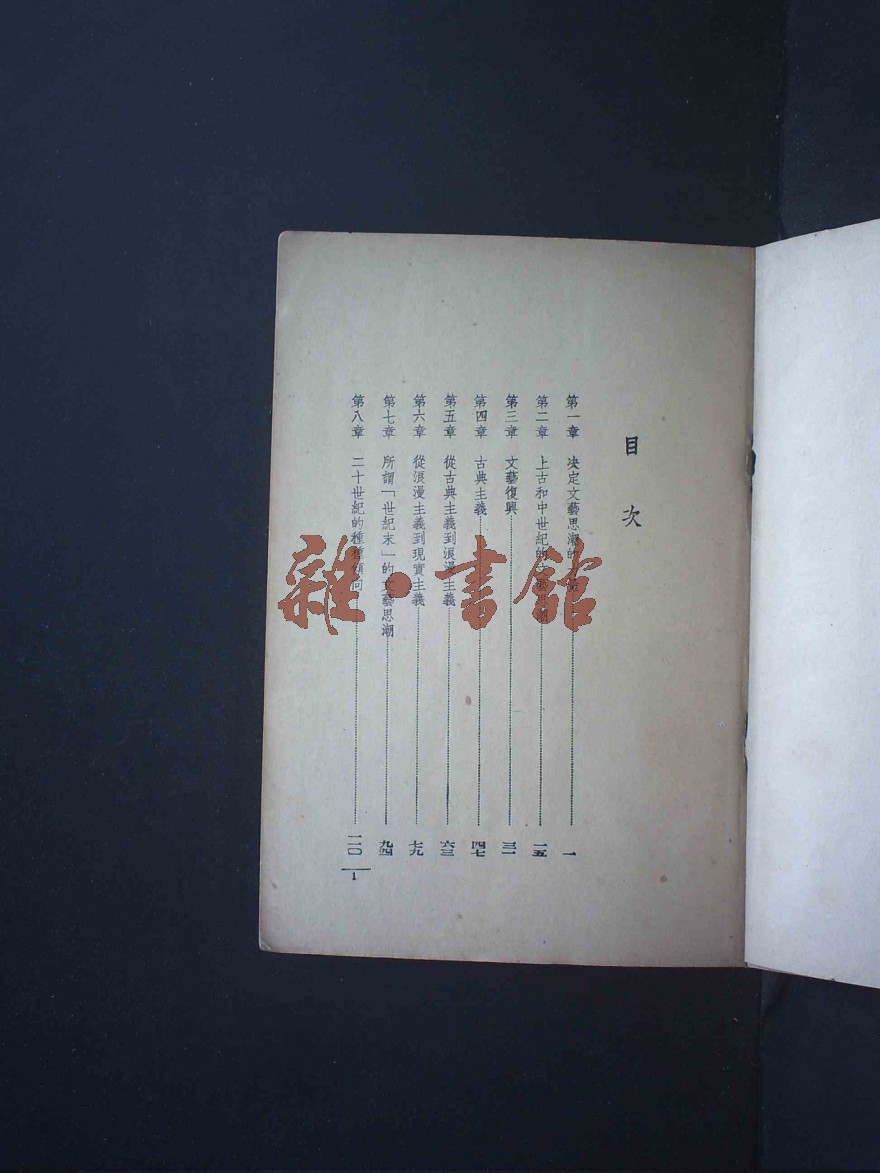 目次
第一章 决定文藝思潮的……一
第二章 上古和中世紀的文藝思潮……一五
第三章 文藝復興……三一
第四章 古典主義……四七
第五章 從古典主義到浪漫主義……六三
第六章 從浪漫主義到現實主義……七九
第七章 所謂「世紀末」的文藝思潮……九四
第八章 二十世紀的種種傾向……一一〇
1
雜·書館